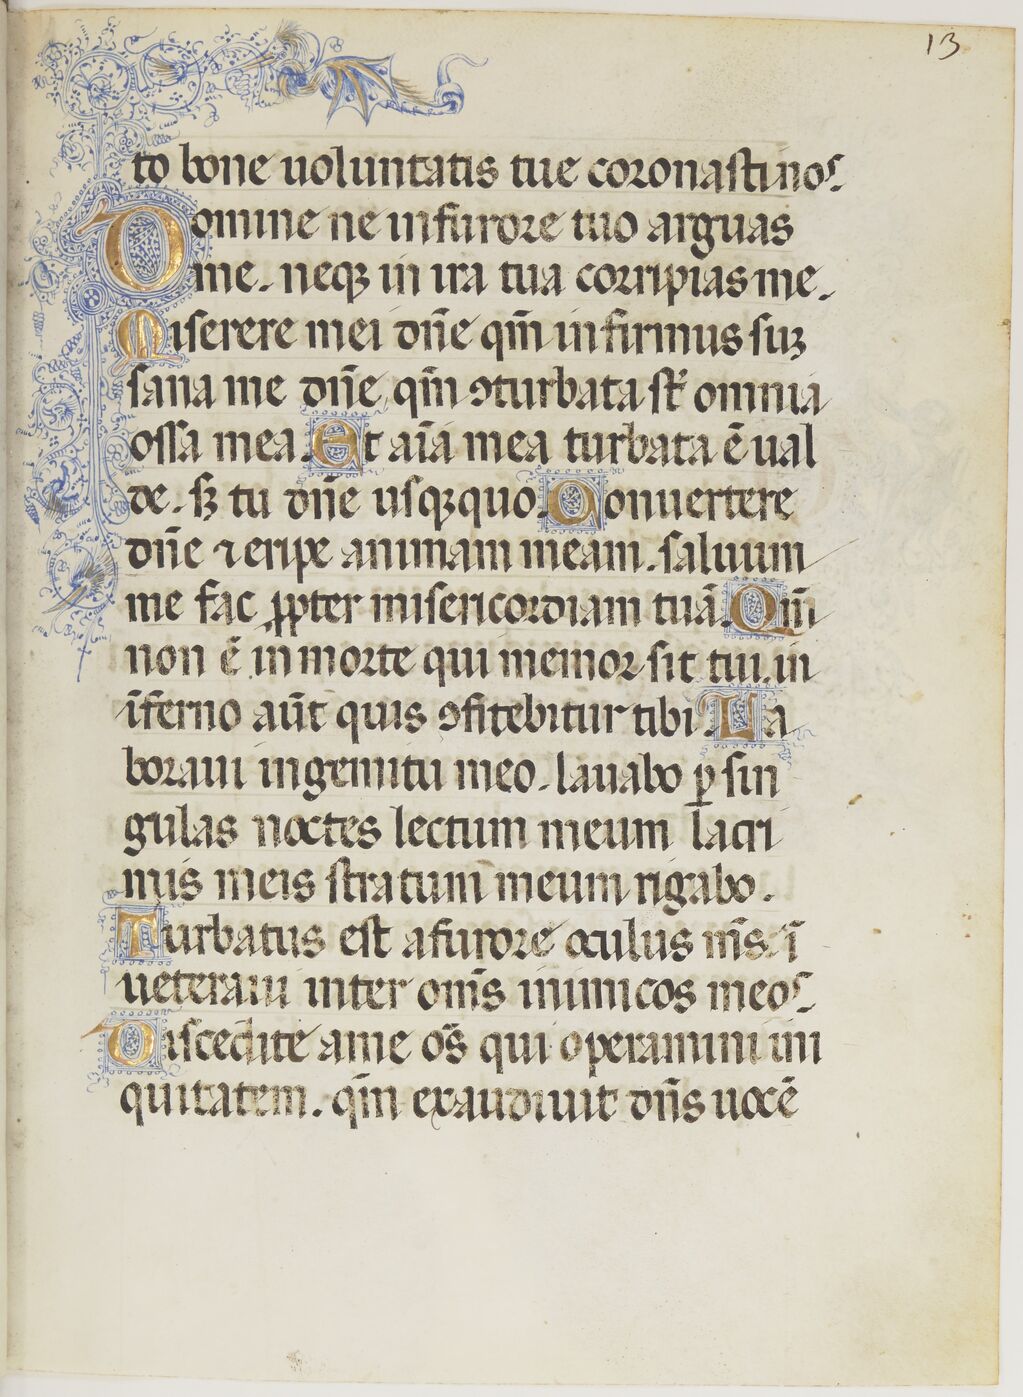 13
to bone uoluntatis tue coronasti nos.
Domine ne in furore tuo arguas
me. neqꝫ in ira tua corripias me.
Miserere mei dn̄e qm̄ infirmus suꝫ
sana me dn̄e qm̄ ꝯturbata st̄ omnia
ossa mea. Et aīa mea turbata ē ual
de. sꝫ tu dn̄e usqꝫquo. Conuertere
dn̄e ⁊ eripe animam meam. saluum
me fac ꝓpter misericordiam tuā. Qm̄
non ē in morte qui memor sit tui. in
īferno aūt quis ꝯfitebitur tibi. La
boraui in gemitu meo. lauabo ꝑ sin
gulas noctes lectum meum lacri
mis meis stratum meum rigabo.
Turbatus est a furore oculus m̄s. ī
ueteraui inter om̄s inimicos meos.
Discedite a me o͞s qui operamini ini
quitatem. qm̄ exaudiuit dn̄s uocē